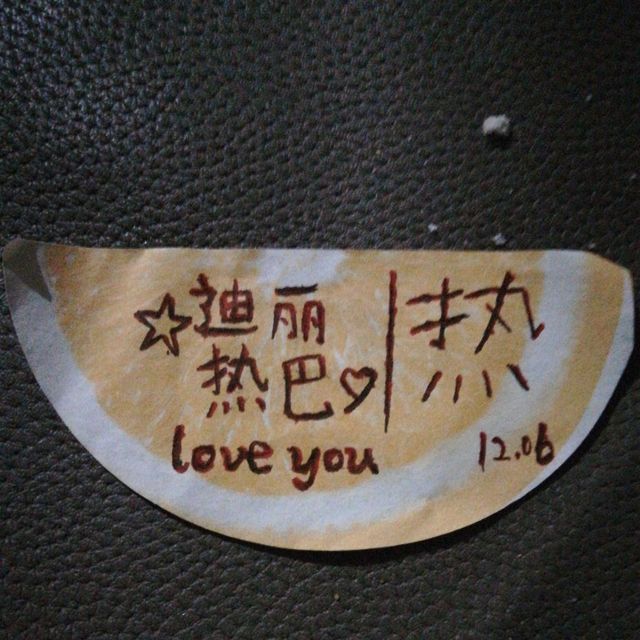 ☆迪丽
热巴♡
love you
热
12.06